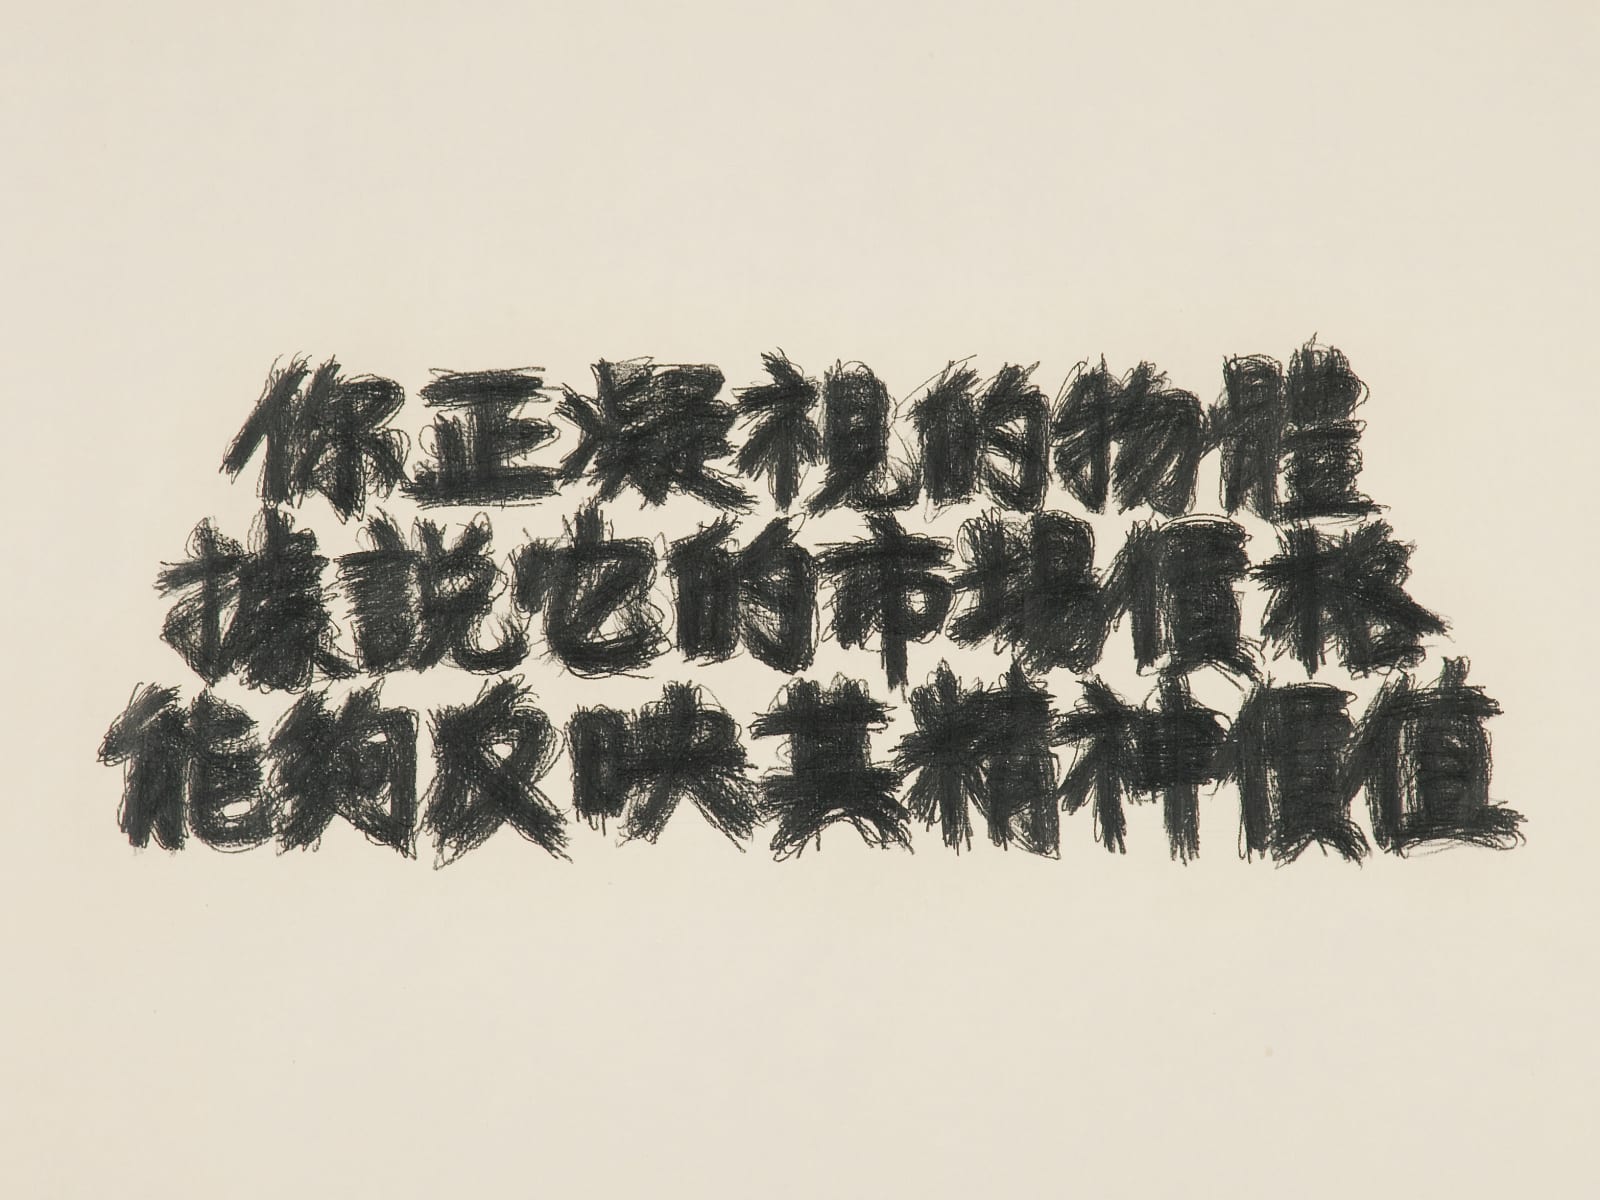 你正凝視的物體
據說它的市場價格
能夠反映其精神價值